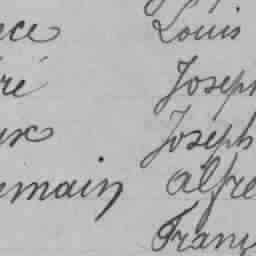 ece Louis
ré Joseph
ux Joseph
emain Alfre
Franç